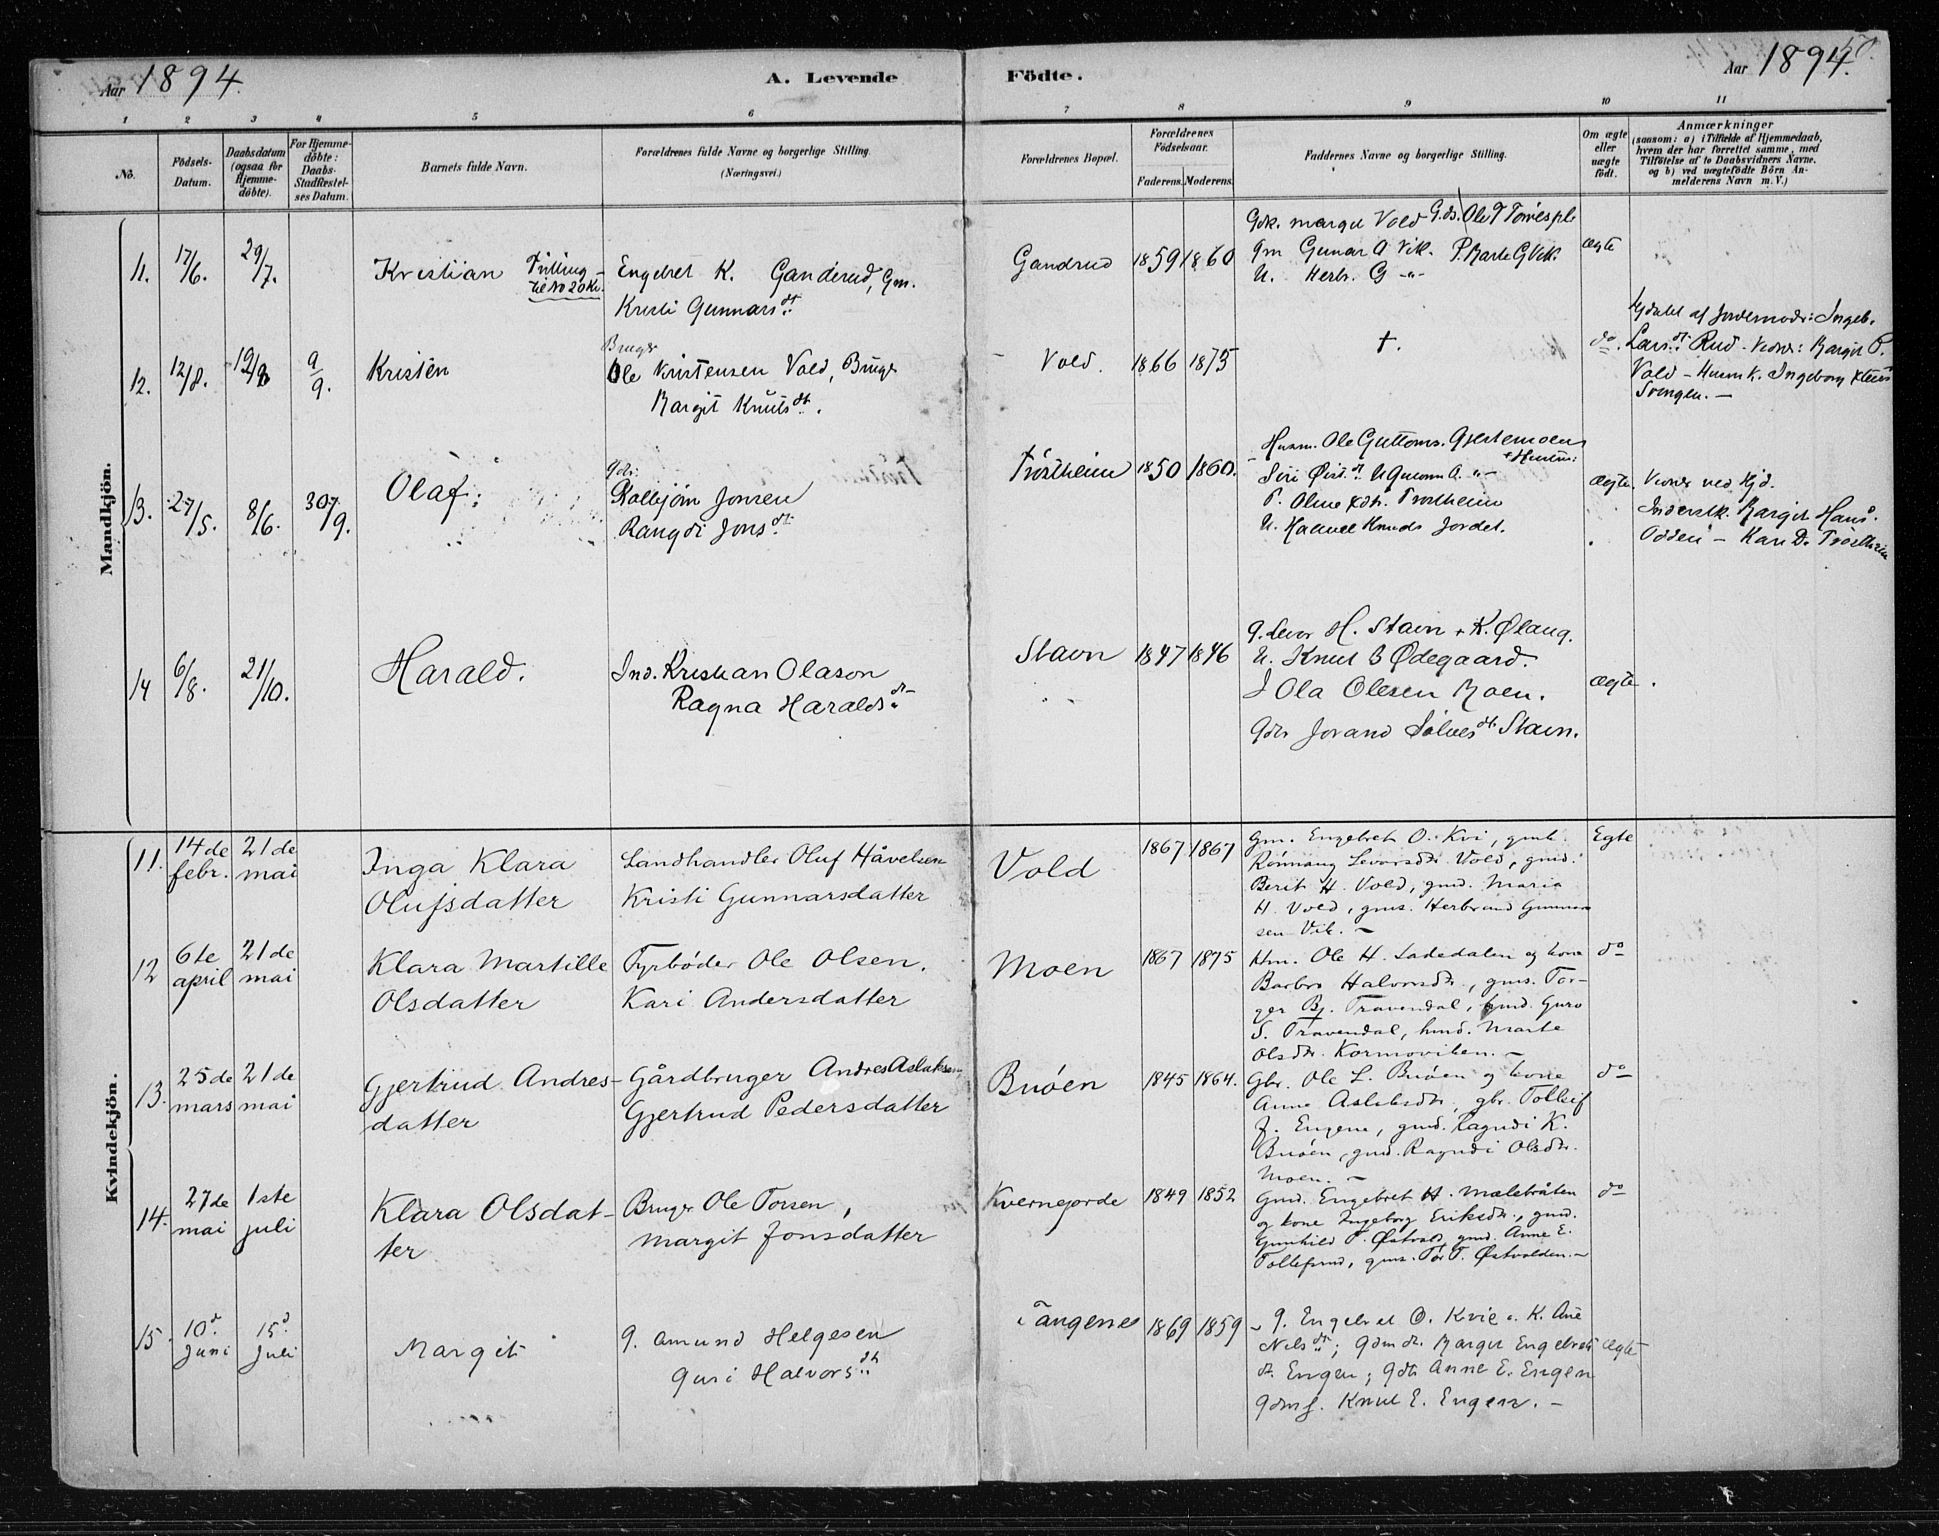 Aar 1894. A. Levende Födte. Aar 1894.
1 2 3 4 5 6 7 8 9 10 11
No. Födsels-Datum. Daabsdatum (ogsaa for Hjemmedöbte). For Hjemmedöbte: Daabs-Stadfæstelses Datum. Barnets fulde Navn. Forældrenes fulde Navne og borgerlige Stilling. (Næringsvei.) Forældrenes Bopæl. Forældrenes Födselsaar. Faderens. Moderens. Faddernes Navne og borgerlige Stilling. Om ægte eller uægte födt. Anmærkninger (saasom: a) i Tilfælde af Hjemmedaab, hvem der har forrettet samme, med Tilföielse af to Daabsvidners Navne, og b) ved uægtefödte Börn Anmelderens Navn m. V.)
Mandkjön.
11. 17/6. 29/7. Kristian Tvilling til No 20 Kv. Engebret K. Ganderud, Gm.
Kristi Gunnars dt.
Gandrud 1859 1860
Gdk. Margit Vold Gds. Ole T
Gm Gunar A Vik. P. Marte G Vik.
U. Herb. G -"-
ægte
12. 12/8. 19/8 9/9. Kristen
Bruger
Ole Kristensen Vold, Bruger
Margit Knuts dt.
Vold. 1866 1875 †. do.
af Jordemoder: Ingeb.
Lars dt. Rud - Vidner: Margit P.
Vold - Husmk. Ingeborg
Svingen. -
13. 27/5. 8/6. 30/9. Olaf.
Gbr.
Tollejör Jonsen
Rangdi Jons dt.
Tröstheim 1850 1860.
Husm. Ole Guttorms. Gjestemoen
Siri
P. Oline Trostheim
U. Knuds Jordet.
ægte. Vidner ved Hjd.
Inderstk. Margit Hans.
Odden - Kari D. Tröstheim
14 6/8. 21/10. Harald.
Ind. Kristian Olason
Ragna Haralds dt.
Stavn 1847 1846
G. Levor H. Stavn + K. Ølaug.
U. Knut B Ødegaard.
J Ola Olesen Moen.
Gdtr Jorand Sölves dt. Stavn.
ægte.
Kvindekjön.
11. 14de febr. 21de mai Inga Klara
Olufsdatter
Landhandler Oluf Håvelsen
Kristi Gunnarsdatter
Vold 1867 1867
Gm. Engebret O. Kvi, gmk.
Rönnaug Levorsdtr. Vold, gmd.
Berit H. Vold, gmd. Maria
H. Vold, gms. Herbrand Gunnar
sen Vik. -
Egte
12 6te april 21de mai Klara Martille
Olsdatter
Fyrbøder Ole Olsen.
Kari Andersdatter
Moen 1867 1875
Hm. Ole H. Ladedalen og kone
Barbro Halvorsdtr., gms. Tor-
ger Bj. Travendal, gmd. Guro
S. Travendal, hmd. Marte
Olsdtr. Kormoviken. -
do
13. 25de mars 21de mai Gjertrud Andres-
datter
Gårdbruger Andres Aslaksen
Gjertrud Pedersdatter
Bruøen 1845 1864.
Gbr. Ole L. Bruøen og kone
Anne Aslaksdtr, gbr. Tolleif
J. Engene, gmd. Ragndi K.
Bruøen, gmd. Ragndi Olsdtr.
Moen. -
do
14. 27de mai 1ste juli Klara Olsdat-
ter
Bruger Ole Torsen,
Margit Jonsdatter
Kvernejorde 1849 1852
Gmd. Engebret H. Mælebråten
og kone Ingeborg Eriksdtr., gmd.
Gunhild T. Østvold, gmd. Anne E.
Tollefsrud, gms. Tor T. Østvolden. -
do
15. 10d. Juni 15d. Juli Margit
G. Amund Helgesen
Guri Halvors dt.
Tangenes 1869 1859
G. Engebret O. Kvie o. K. Ane
Nils dt.; Gdmdt. Margit Engebrets
dt. Engen; Gdtr Anne E. Engen
Gdmf. Knut E. Engen. -
ægte